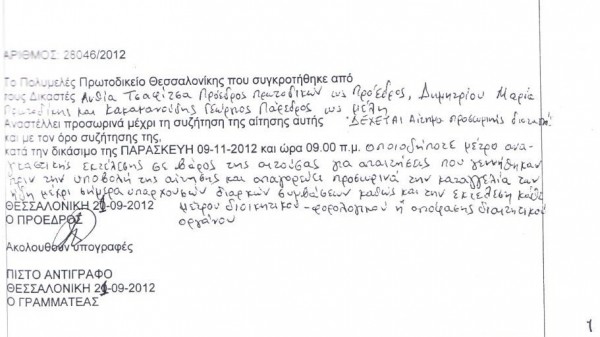 ΑΡΙΘΜΟΣ: 26046/2012
Το Πολυμελές Πρωτοδικείο Θεσσαλονίκης που συγκροτήθηκε από
τους Δικαστές Ανθία Τσαφίτσα Πρόεδρος Πρωτοδικών ως Πρόεδρος, Δημητρίου Μαρία
Πρωτοδίκης και Κακατσούδης Γεώργιος Πάρεδρος ως μέλη
Αναστέλλει προσωρινά μέχρι τη συζήτηση της αίτησης αυτής ΔΕΧΕΤΑΙ Αίτημα προσωρινής διαταγή
και με τον όρο συζήτησης της,
κατά την δικάσιμο της ΠΑΡΑΣΚΕΥΗ 09-11-2012 και ώρα 09.00 π.μ. οποιοδήποτε μέτρο ανα-
γκαστικής εκτέλεσης σε βάρος της αιτούσας για απαιτήσεις που γεννήθηκαν
πριν την υποβολή της αίτησης και απαγορεύει προσωρινά την καταγγελία των
ήδη μέχρι σήμερα υπαρχουσών διαρκών συμβάσεων καθώς και την εκτέλεση κάθε
ΘΕΣΣΑΛΟΝΙΚΗ 21-09-2012 μέτρου διοικητικού-φορολογικού ή απόφασης διαιτητικού
Ο ΠΡΟΕΔΡΟΣ οργάνου
Ακολουθούν υπογραφές
ΠΙΣΤΟ ΑΝΤΙΓΡΑΦΟ
ΘΕΣΣΑΛΟΝΙΚΗ 21-09-2012
Ο ΓΡΑΜΜΑΤΕΑΣ